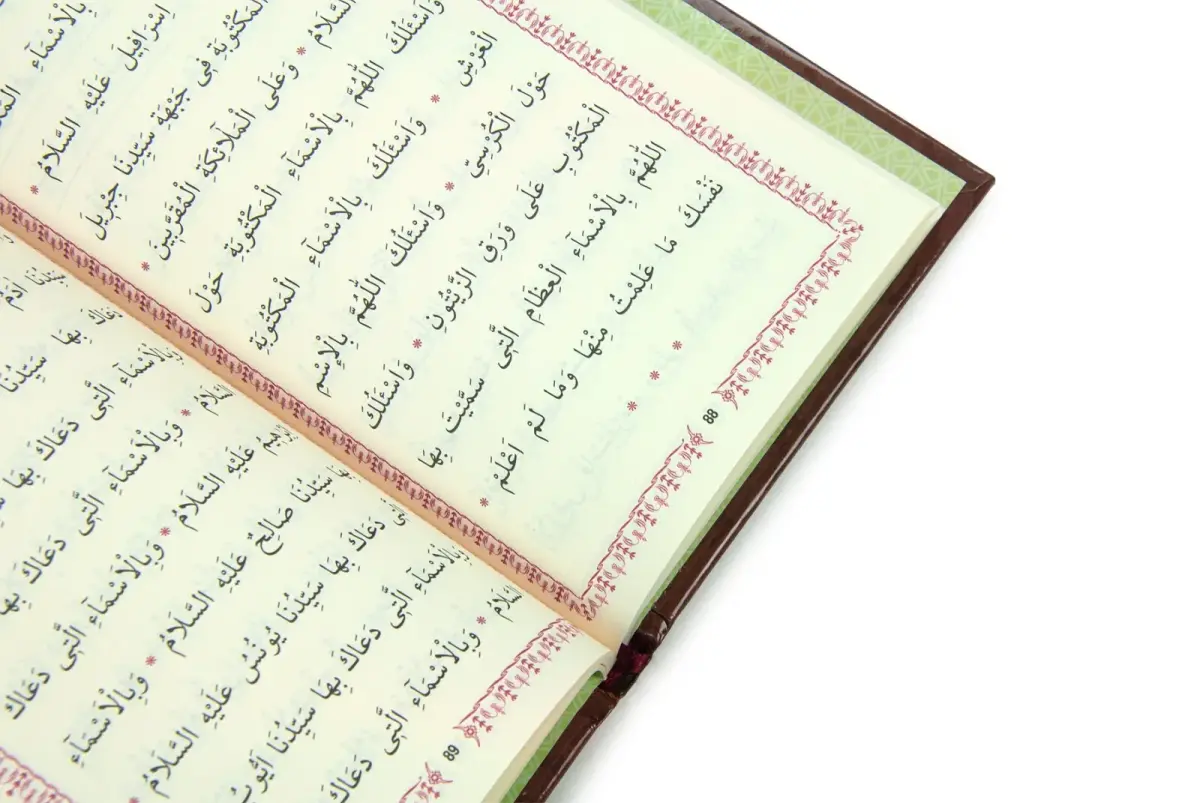 بِالْاَسْمَآءِ
اِسْرَافِيلَ عَلَيْهِ السَّلَامُ *
الْمَكْتُوبَةِ فِى جَبْهَةِ سَيِّدِنَا جِبْرِيلَ
السَّلَامُ * وَعَلَى الْمَلَآئِكَةِ الْمُقَرَّبِينَ *
وَاَسْئَلُكَ اللّٰهُمَّ بِالْاَسْمَآءِ الْمَكْتُوبَةِ حَوْلَ
الْعَرْشِ * وَاَسْئَلُكَ بِالْاَسْمَآءِ الْمَكْتُوبَةِ
حَوْلَ الْكُرْسِىِّ * وَاَسْئَلُكَ اللّٰهُمَّ بِالْاِسْمِ
الْمَكْتُوبِ عَلَى وَرَقِ الزَّيْتُونِ * وَاَسْئَلُكَ
اللّٰهُمَّ بِالْاَسْمَآءِ الْعِظَامِ الَّتِى سَمَّيْتَ بِهَا
نَفْسَكَ مَا عَلِمْتُ مِنْهَا وَمَا لَمْ اَعْلَمْ *
* * *
88
اٰدَمُ
دَعَاكَ بِهَا سَيِّدُنَا
وَبِالْاَسْمَآءِ الَّتِى دَعَاكَ بِهَا
السَّلَامُ * وَبِالْاَسْمَآءِ الَّتِى دَعَاكَ بِهَا
اِبْرَاهِيمُ عَلَيْهِ السَّلَامُ * وَبِالْاَسْمَآءِ الَّتِى دَعَاكَ
بِهَا سَيِّدُنَا صَالِحٌ عَلَيْهِ السَّلَامُ * وَبِالْاَسْمَآءِ
الَّتِى دَعَاكَ بِهَا سَيِّدُنَا يُونُسُ عَلَيْهِ السَّلَامُ *
وَبِالْاَسْمَآءِ الَّتِى دَعَاكَ بِهَا سَيِّدُنَا اَيُّوبُ
السَّلَامُ * وَبِالْاَسْمَآءِ الَّتِى دَعَاكَ
89